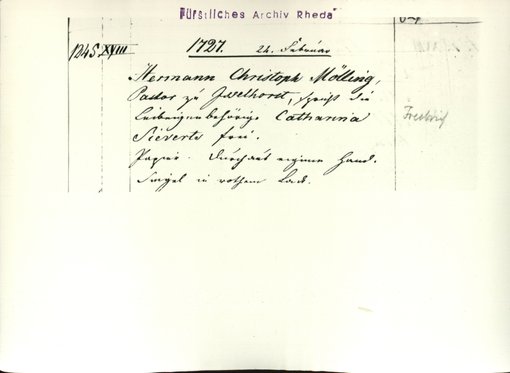 Fürstliches Archiv Rheda
1245 XXIII 1727. 24. Februar
Hermann Christoph Mölling,
Pastor zu Isselhorst, spricht die
Leibeigenbehörige Catharina
Sieverts frei.
Papier. Durchaus eigene Hand.
Siegel in rothem Lack.
Freibrief